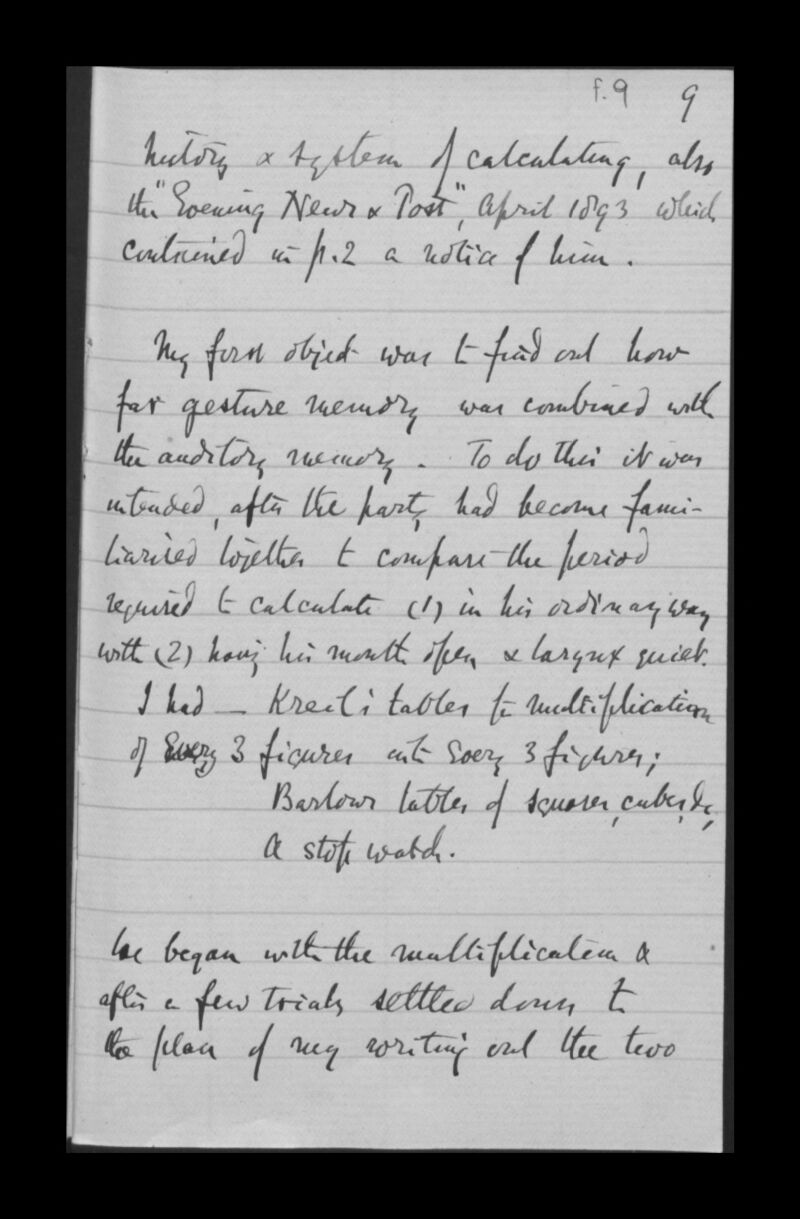 f.9 9
history & system of calculating, also
the "Evening News & Post", April 1893 which
contained in p.2 a notice of him.
My first object was to find out how
far gesture memory was combined with
the auditory memory. To do this it was
intended, after the party had become fami-
liarised together to compare the period
required to calculate (1) in his ordinary way
with (2) having his mouth open & larynx quiet.
I had — tables for multiplication
of every 3 figures into every 3 figures;
Barlows tables of squares, cubes, &c,
A stop watch.
We began with the multiplication &
after a few trials settled down to
the plan of my writing out the two